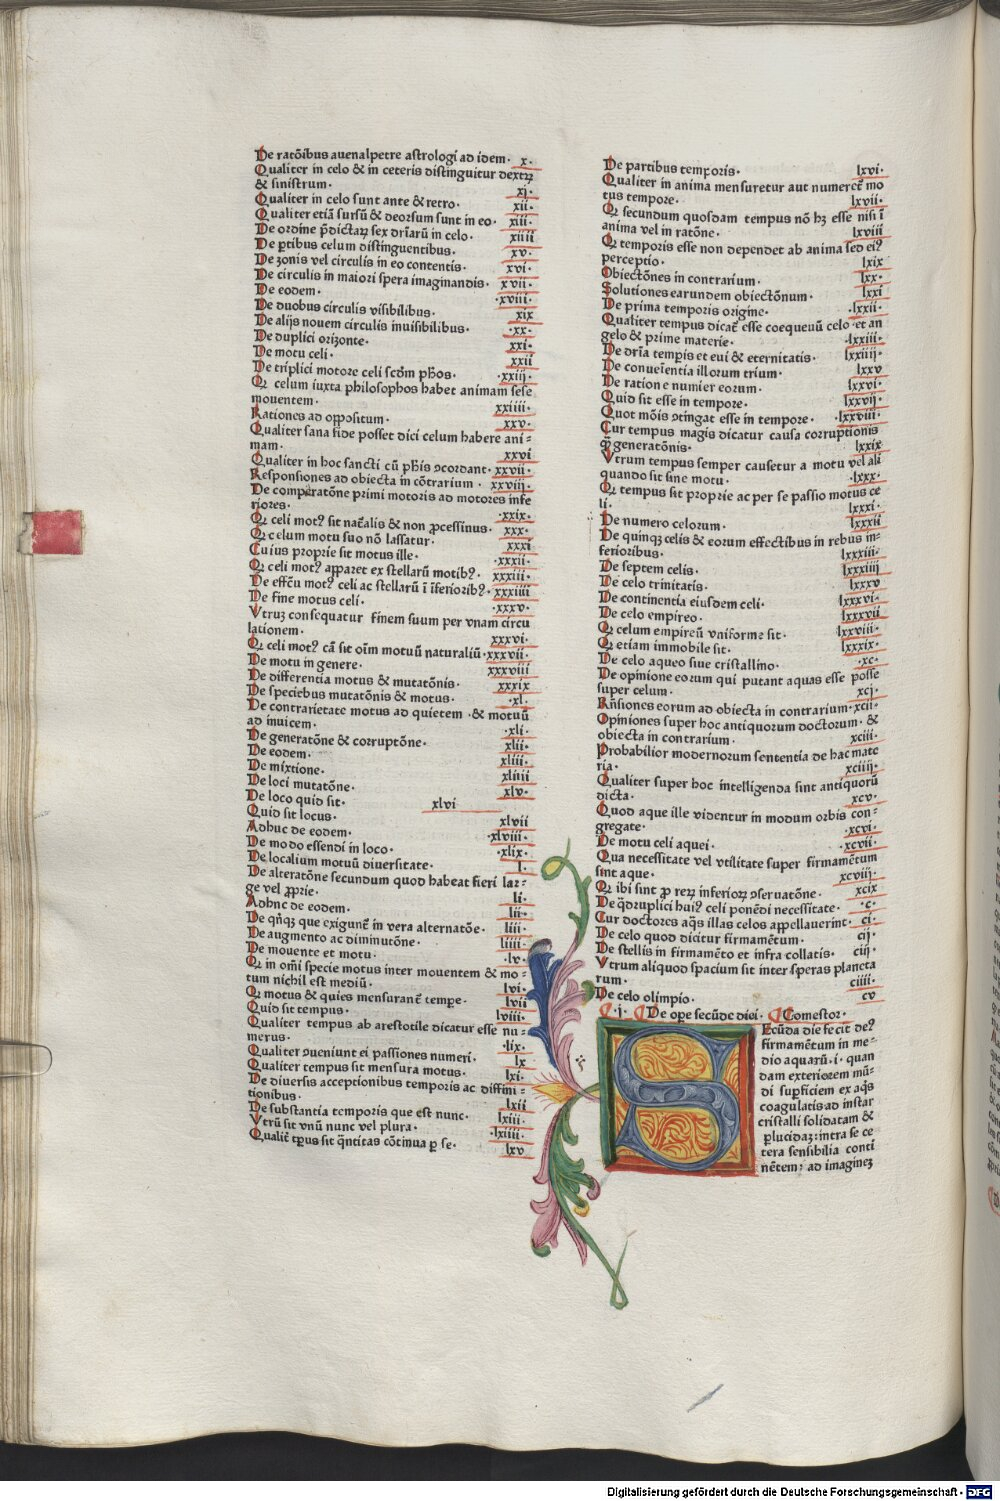 De ratõibus auenalpetre astrologi ad idem· x·
Qualiter in celo & in ceteris distinguitur dextrꝝ
& sinistrum· xj·
Qualiter in celo sunt ante & retro· xii·
Qualiter etiã sursũ & deorsum sunt in eo· xiii·
De ordine p̃dictaꝝ sex dr̃iarũ in celo· xiiii
De ꝑtibus celum distinguentibus· xv·
De zonis vel circulis in eo contentis· xvi·
De circulis in maiori spera imaginandis· xvii·
De eodem· ·xviii·
De duobus circulis visibilibus· xix
De alijs nouem circulis inuisibilibus· ·xx·
De duplici orizonte· xxi·
De motu celi· xxii
De triplici motore celi scd̃m ph̃os· ·xxiij·
Ꝙ celum iuxta philosophos habet animam sese
mouentem· xxiiii·
Rationes ad oppositum· xxv·
Qualiter sana fide posset dici celum habere ani-
mam· xxvi
Qualiter in hoc sancti cũ ph̃is ↄcordant· xxvii·
Responsiones ad obiecta in cõtrarium · xxviii·
De comparatõne primi motoris ad motores infe
riores· ·xxix·
Ꝙ celi motꝰ sit nat̃alis & non ꝓcessiuus· xxx·
Ꝙ celum motu suo nõ lassatur· xxxi
Cuius proprie sit motus ille· ·xxxii·
Ꝙ celi motꝰ apparet ex stellarũ motibꝰ· xxxiii·
De effc̃u motꝰ celi ac stellarũ ĩ ĩferioribꝰ· xxxiiii
De fine motus celi· ·xxxv·
Vtruꝫ consequatur finem suum per vnam circu
lationem· xxxvi·
Ꝙ celi motꝰ cã sit oĩm motuũ naturaliũ·xxxvii·
De motu in genere· xxxviii
De differentia motus & mutatõnis· xxxix
De speciebus mutatõnis & motus· ·xl·
De contrarietate motus ad quietem ·& motuũ
ad inuicem· ·xli·
De generatõne & corruptõne· xlii·
De eodem· xliii·
De mixtione· xliiii
De loci mutatõne· xlv·
De loco quid sit· xlvi
Quid sit locus· xlvii
Adhuc de eodem· ·xlviii·
De modo essendi in loco· ·xlix·
De localium motuũ diuersitate· l·
De alteratõne secundum quod habeat fieri lar-
ge vel ꝓprie· li·
Adhuc de eodem· lii·
De qn̄qꝫ que exigunt̃ in vera alternatõe· liii·
De augmento ac diminutõne· liiii·
De mouente et motu· ·lv·
Ꝙ in om̃i specie motus inter mouentem & mo-
tum nichil est mediũ· lvi·
Ꝙ motus & quies mensurant̃ tempe· lvii
Quid sit tempus· lviii·
Qualiter tempus ab arestotile dicatur esse nu-
merus· ·lix·
Qualiter ↄueniunt ei passiones numeri· lx
Qualiter tempus sit mensura motus· lxi·
De diuersis acceptionibus temporis ac diffini-
tionibus· lxii
De substantia temporis que est nunc· lxiii·
Vtrũ sit vnũ nunc vel plura· ·lxiiii·
Qualit̃ tꝑus sit q̃ntitas cõtinua ꝑ se· lxv
De partibus temporis· lxvi·
Qualiter in anima mensuretur aut numeret̃ mo
tus tempore· lxvii·
Ꝙ secundum quosdam tempus nõ hꝫ esse nisi ĩ
anima vel in ratõne· lxviii
Ꝙ temporis esse non dependet ab anima sed eiꝰ
perceptio· lxix
Obiectõnes in contrarium· lxx·
Solutiones earundem obiectõnum· lxxi
De prima temporis origine· ·lxxii·
Qualiter tempus dicat̃ esse coequeuũ celo et an
gelo & prime materie· ·lxxiii·
De dr̃ia temp̃is et eui & eternitatis· lxxiiij·
De conueĩentia illorum trium· lxxv
De ratione numier eorum· lxxvi·
Quid sit esse in tempore· lxxvij·
Quot mõis ↄtingat esse in tempore· ·lxxviii·
Cur tempus magis dicatur causa corruptionis
ꝙ̃ generatõnis· lxxix
Vtrum tempus semper causetur a motu vel ali
quando sit sine motu· ·lxxx·
Ꝙ tempus sit proprie ac per se passio motus ce
li· lxxxi·
De numero celorum· lxxxii
De quinqꝫ celis & eorum effectibus in rebus in-
ferioribus· lxxxiii·
De septem celis· lxxxiiij
De celo trinitatis· lxxxv
De continentia eiusdem celi· lxxxvi·
De celo empireo· lxxxvii
Ꝙ celum empireũ vniforme sit· lxxviii·
Ꝙ etiam immobile sit· lxxxix·
De celo aqueo siue cristallino· ·xc·
De opinione eorum qui putant aquas esse posse
super celum· xcj·
Rñsiones eorum ad obiecta in contrarium·xcii·
Opiniones super hoc antiquorum doctorum· &
obiecta in contrarium· xciii·
Probabilior modernorum sententia de hac mate
ria· xciiij·
Qualiter super hoc intelligenda sint antiquorũ
dicta· xcv·
Quod aque ille videntur in modum orbis con-
gregate· ·xcvi·
De motu celi aquei· ·xcvii·
Qua necessitate vel vtilitate super firmamẽtum
sint aque· xcviij·
Ꝙ ibi sint ꝓ reꝝ inferioꝝ ↄseruatõne· xcix
De q̃druplici huiꝰ celi ponẽdi necessitate· ·c·
Cur doctores aq̃s illas celos appellauerint· ci·
De celo quod dicitur firmamẽtum· cij·
De stellis in firmamẽto et infra collatis· ciij·
Vtrum aliquod spacium sit inter speras planeta
rum· ciiii·
De celo olimpio· cv
C·j· De oꝑe secũde diei· Comestor·
Ecũda die fecit deꝰ
firmamẽtum in me-
dio aquarũ·i·quan
dam exteriorem mũ-
di supficiem ex aq̃s
coagulatis ad instar
cristalli solidatam &
ꝑlucidaꝫ: intra se ce
tera sensibilia conti
nẽtem: ad imagineꝫ
Digitalisierung gefördert durch die Deutsche Forschungsgemeinschaft · DFG